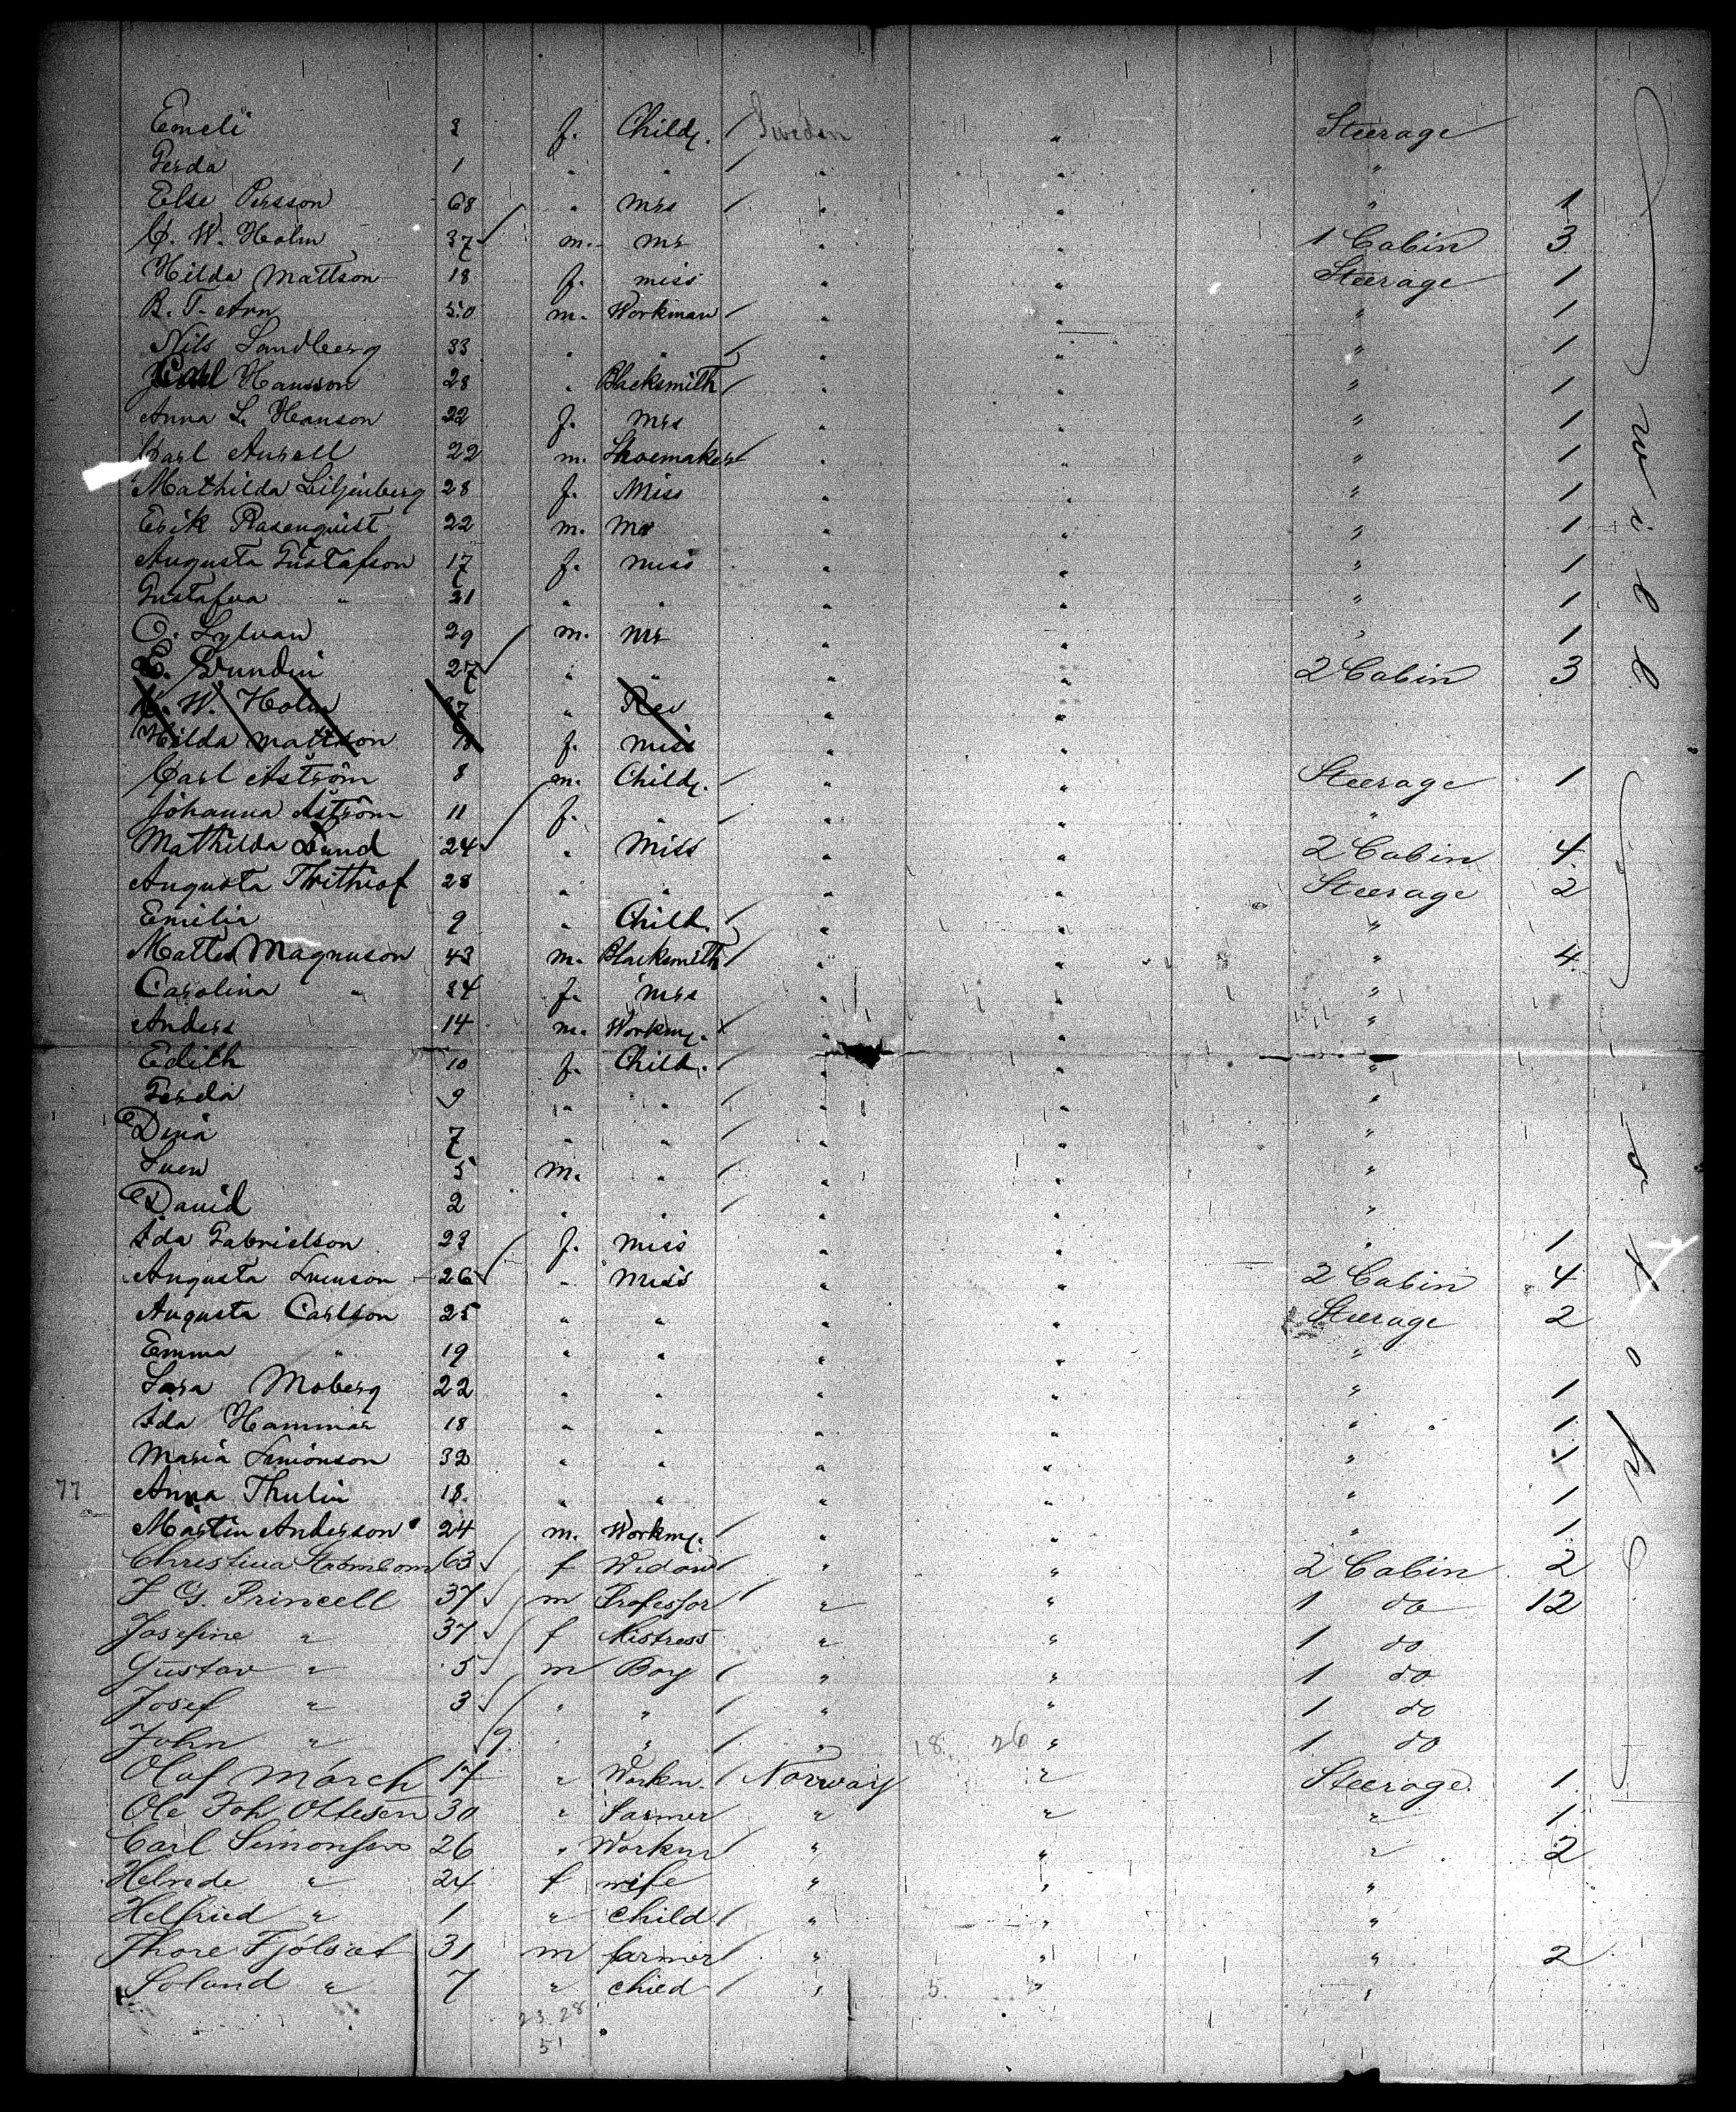 Emeli 3 f. Child. / Sweden " Steerage
Gerda 1 " " / " " "
Else Persson 68 " Mrs / " " " 1
C. W. Holm 37 m. Mr " " 1 Cabin 3
Hilda Mattson 18 f. miss " " Steerage 1
B. T. Arn 50 m. Workman / " " " 1
Nils Sandberg 33 " " / " " " 1
Carl Hansson 28 " Blacksmith / " " " 1
Anna L. Hanson 22 f. Mrs " " " 1
Carl Aurell 22 m. Shoemaker / " " " 1
Mathilda Liljenberg 28 f. Miss " " " 1
Erik Rosenquist 22 m. Mr " " " 1
Augusta Gustafson 17 f. miss " " " 1
Gustafva " 21 " " " " " 1
O. Sylvan 29 m. Mr " " " 1
E. Lundin 27 " " " " 2 Cabin 3
C. W. Holm 37 " Rev " "
Hilda Mattson 18 f. miss " "
Carl Aström 8 m. Child. / " " Steerage 1
Johanna Aström 11 f. " / " " "
Mathilda Lund 24 " Miss " " 2 Cabin 4
Augusta Thithiof 28 " " " " Steerage 2
Emilia 9 " Child. / " " "
Matts Magnuson 43 m. Blacksmith / " " " 4
Carolina " 34 f. Mrs " " "
Anders 14 m. Workm. x " " "
Edith 10 f. Child. / " " "
Gerda 9 " " / " " "
Dina 7 " " / " " "
Sven 5 m. " / " " "
David 2 " " / " " "
Ida Gabrielson 23 f. Miss " " " 1
Augusta Svenson 26 " Miss " " 2 Cabin 4
Augusta Carlson 25 " " " " Steerage 2
Emma " 19 " " " " "
Sara Moberg 22 " " " " " 1
Ida Hammar 18 " " " " " 1
Maria Simonson 32 " " " " " 1
77 Anna Thulin 18 " " " " " 1
Martin Anderson 24 m. Workm. / " " " 1
Christina Strömbom 63 f Widow / " " 2 Cabin 2
J G. Princell 37 m Professor / " " 1 do 12
Josefine " 37 f Mistress " " 1 do
Gustav " 5 m Boy / " " 1 do
Josef " 3 " " / " " 1 do
John " 9 " " / " 18. 26 " 1 do
Olaf Mörch 17 " Workm. / Norway " Steerage 1
Ole Joh Ottesen 30 " Farmer " " " 1
Carl Simonsen 26 " Workm / " " " 2
Helvede " 24 f wife " " "
Helfried " 1 " child / " " "
Thore Fjölset 31 m farmer / " " " 2
Soland " 7 " child / " 5. " "
23. 28
51